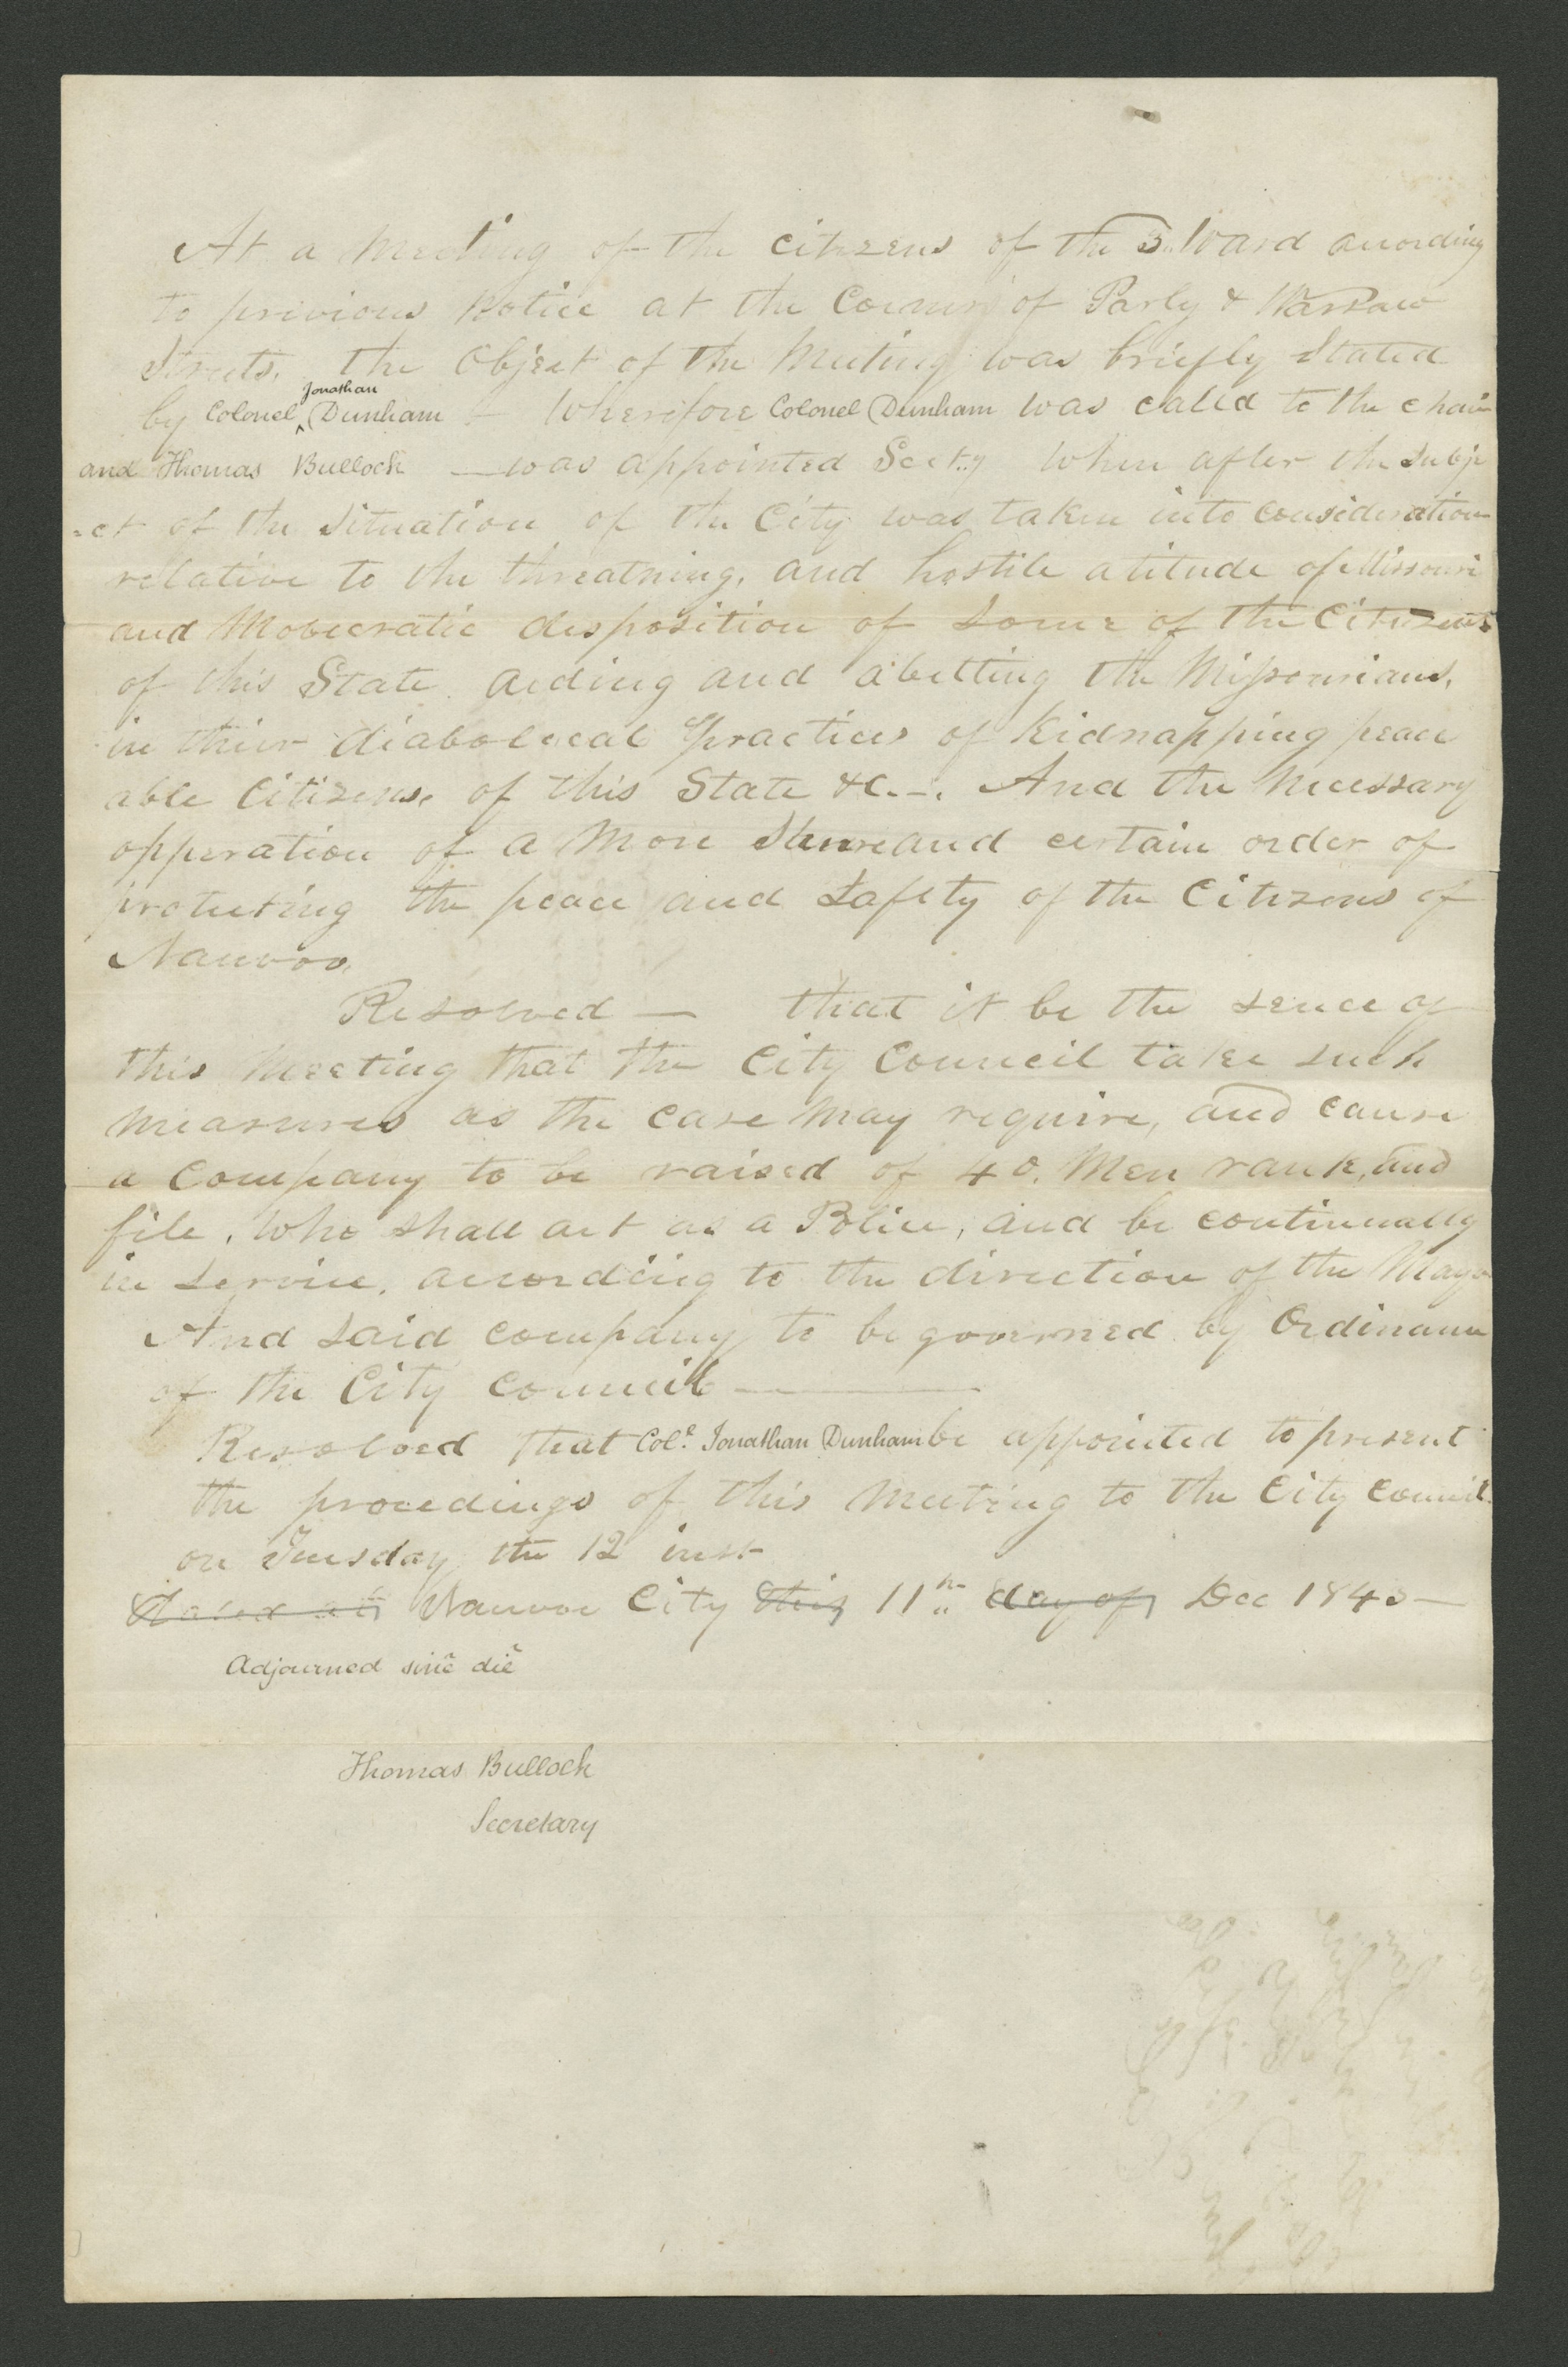 At a Meeting of the citizens of the 3. Ward according
to privious notice at the Corner of Parly & Warsaw
Streets. the Object of the Meeting was briefly Stated
by Colonel ^Jonathan Dunham – Wherefore Colonel Dunham was caled to the chair
and Thomas Bullock — was appointed Sect.y When after the Subje
-ct of the Situation of the City was taken into consideration
relative to the threatning, and hostile atitude of Missouri
and Mobocratic disposition of Some of the Citizens
of this State. aiding and abetting the Missourians,
in thier diabolical practices of Kidnapping peace
able Citizens, of this State &c.–. And the necessary
opperation of a More and certain order of
protecting the peace and Safety of the Citizens of
Nauvoo,
Resolved — that it be the sence of
this Meeting that the City Council take such
measures as the case May require, and cause
a Company to be raised of 40. Men rank, and
file, who shall act as a Police, and be continually
in Service, according to the direction of the Mayo
And Said company to be governed by Ordinance
of the City Council —
Resolved that Col.l Jonathan Dunham be appointed to present
the procedings of this Meeting to the City Council.
on Tuesday the 12 inst
Nauvoo City this 11th day of Dec 1843 —
Adjourned sine die
Thomas Bullock
Secretary